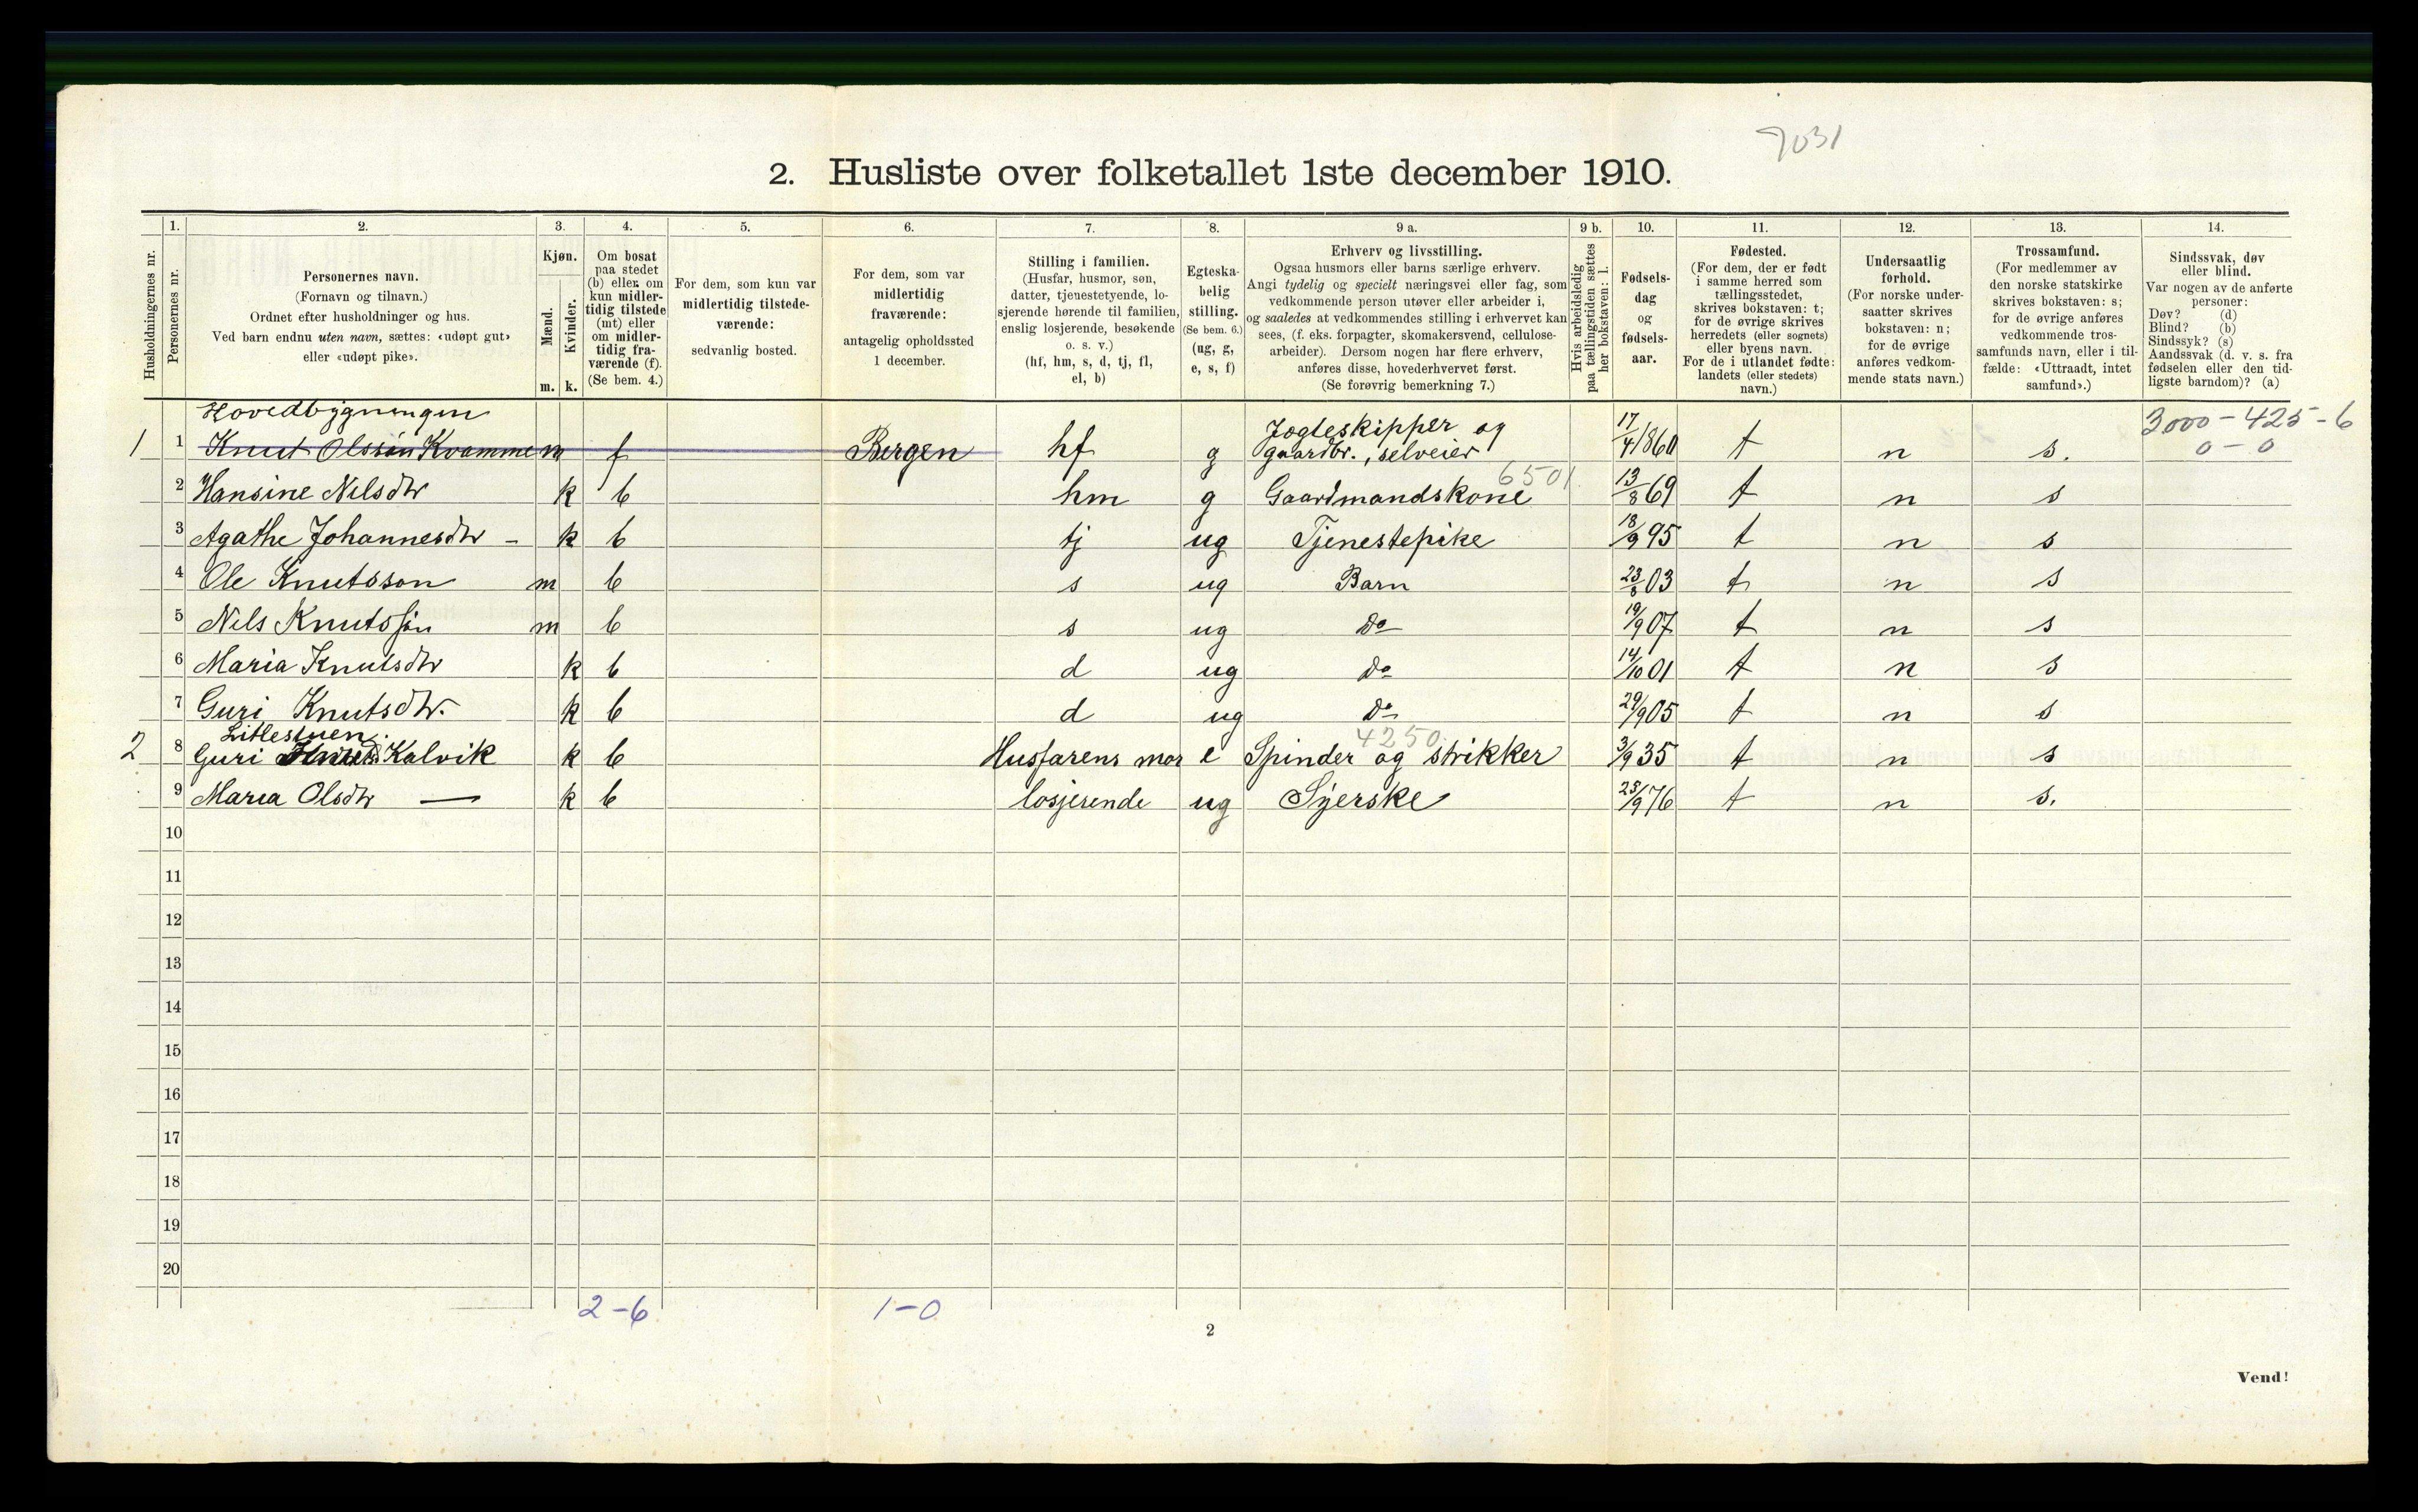 7031
2. Husliste over folketallet 1ste december 1910.
1. 2. 3. 4. 5. 6. 7. 8. 9 a. 9 b. 10. 11. 12. 13. 14.
Husholdningernes nr.
Personernes nr.
Personernes navn.
(Fornavn og tilnavn.)
Ordnet efter husholdninger og hus.
Ved barn endnu uten navn, sættes: «udøpt gut»
eller «udøpt pike».
Kjøn.
Mænd.
Kvinder.
m. k.
Om bosat
paa stedet
(b) eller om
kun midler-
tidig tilstede
(mt) eller
om midler-
tidig fra-
værende (f).
(Se bem. 4.)
For dem, som kun var
midlertidig tilstede-
værende:
sedvanlig bosted.
For dem, som var
midlertidig
fraværende:
antagelig opholdssted
1 december.
Stilling i familien.
(Husfar, husmor, søn,
datter, tjenestetyende, lo-
sjerende hørende til familien,
enslig losjerende, besøkende
o. s. v.)
(hf, hm, s, d, tj, fl,
el, b)
Egteska-
belig
stilling.
(Se bem. 6.)
(ug, g,
e, s, f)
Erhverv og livsstilling.
Ogsaa husmors eller barns særlige erhverv.
Angi tydelig og specielt næringsvei eller fag, som
vedkommende person utøver eller arbeider i,
og saaledes at vedkommendes stilling i erhvervet kan
sees, (f. eks. forpagter, skomakersvend, cellulose-
arbeider). Dersom nogen har flere erhverv,
anføres disse, hovederhvervet først.
(Se forøvrig bemerkning 7.)
Hvis arbeidsledig
paa tællingstiden sættes
her bokstaven: l.
Fødsels-
dag
og
fødsels-
aar.
Fødested.
(For dem, der er født
i samme herred som
tællingsstedet,
skrives bokstaven: t;
for de øvrige skrives
herredets (eller sognets)
eller byens navn.
For de i utlandet fødte:
landets (eller stedets)
navn.)
Undersaatlig
forhold.
(For norske under-
saatter skrives
bokstaven: n;
for de øvrige
anføres vedkom-
mende stats navn.)
Trossamfund.
(For medlemmer av
den norske statskirke
skrives bokstaven: s;
for de øvrige anføres
vedkommende tros-
samfunds navn, eller i til-
fælde: «Uttraadt, intet
samfund».)
Sindssvak, døv
eller blind.
Var nogen av de anførte
personer:
Døv? (d)
Blind? (b)
Sindssyk? (s)
Aandssvak (d. v. s. fra
fødselen eller den tid-
ligste barndom)? (a)
Hovedbygningen
3000 - 425 - 6
0 - 0
1 1 Knut Olssön Kvamme m f Bergen hf g Jogteskipper og gaardbr., selveier 17/4 1860 t n s.
6501
2 Hansine Nilsdtr k b hm g Gaardmandskone 13/8 69 t n s
3 Agathe Johannesdtr - k b tj ug Tjenestepike 18/9 95 t n s
4 Ole Knutsson m b s ug Barn 23/8 03 t n s
5 Nils Knutssön m b s ug Do 19/9 07 t n s
6 Maria Knutsdtr k b d ug Do 14/10 01 t n s
7 Guri Knutsdtr. k b d ug Do 29/9 05 t n s
Litlestuen.
4250
2 8 Guri Kalvik k b Husfarens mor e Spinder og strikker 3/9 35 t n s
9 Maria Olsdtr — k b losjerende ug Syerske 25/9 76 t n s.
10
11
12
13
14
15
16
17
18
19
20
2-6 1-0
2
Vend!